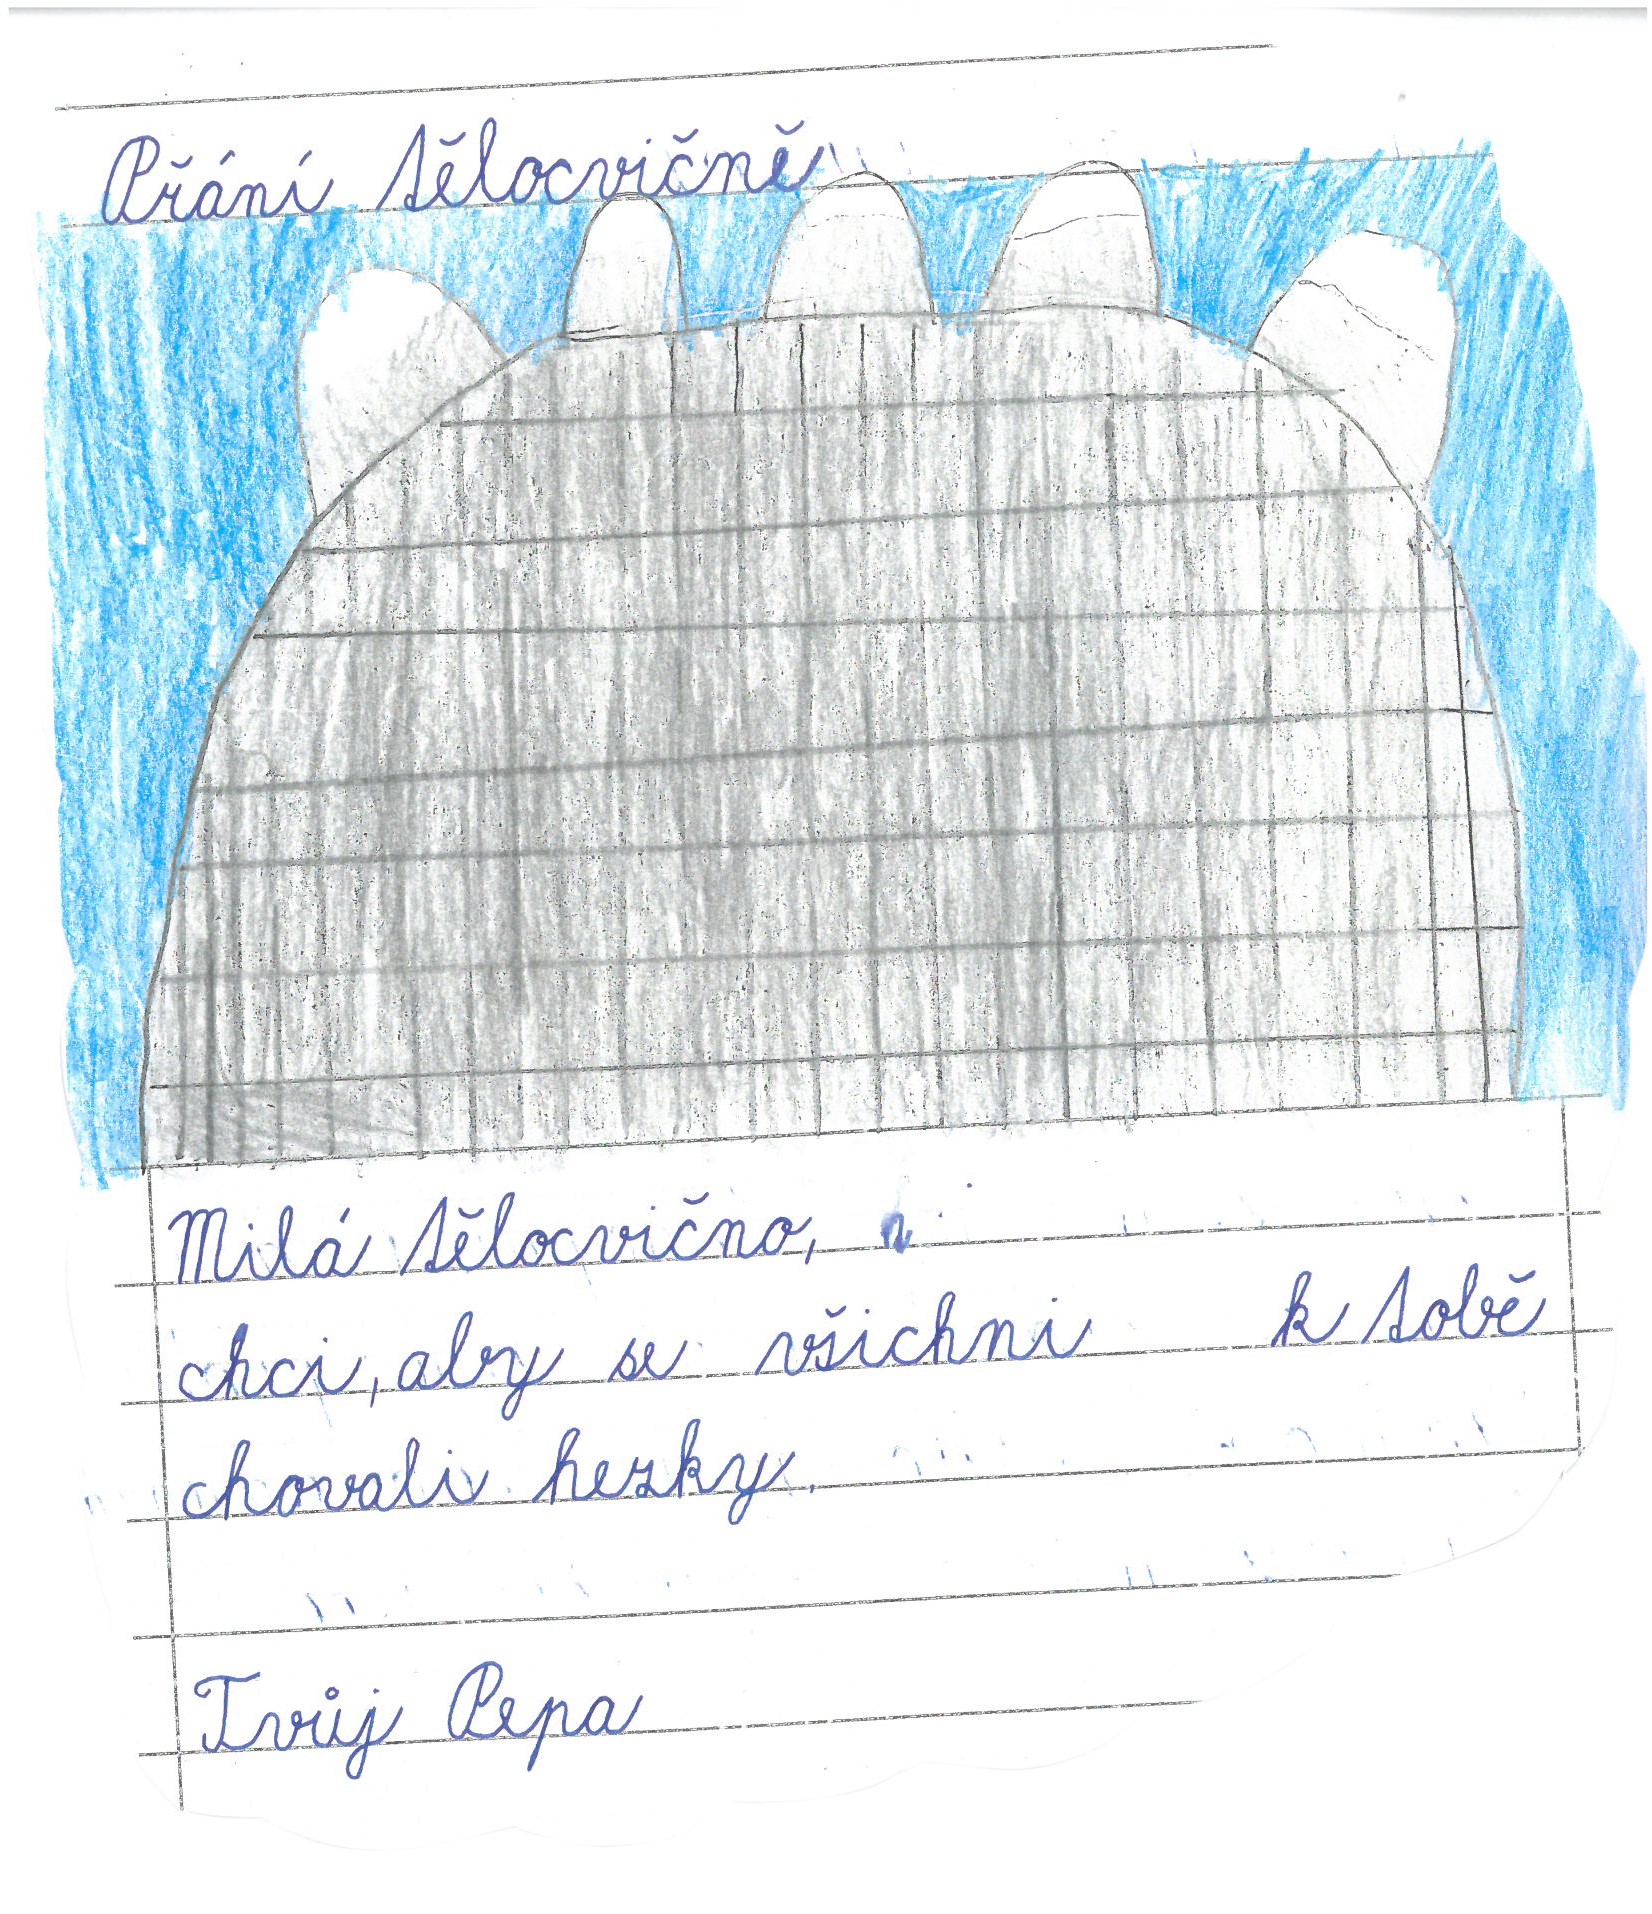 Přání tělocvičně
Milá tělocvično,
chci, aby se všichni k tobě
chovali hezky.
Tvůj Pepa